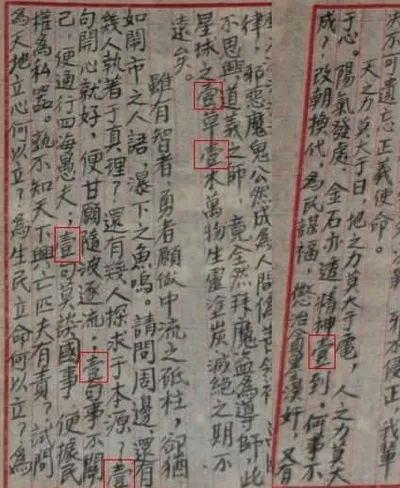 夫不可遺忘正義使命。
天之力莫大于日,地之力莫大于電,人之力莫大
于心。陽氣發處,金石亦透,精神壹到,何事不
成?改朝換代 為民謀福,懲治貪官漢奸,又有
律,邪惡魔鬼公然成為人間
不思興道義之師,竟全然拜魔盗為導師,此
星球之壹草壹木萬物生靈塗炭滅絕之期不
遠矣。
雖有智者,勇者願做中流之砥柱,卻猶
如鬧市之人語,瀑下之魚鳴。請問周邊還有
幾人執着于真理?還有幾人探求于本源?壹
句開心就好,便甘願隨波逐流;壹句事不關
己,便通行四海愚夫;壹句莫談國事 便據民
權為私器。孰不知天下興亡匹夫有責?試問
為天地立心何以立?為生民立命何以立?為